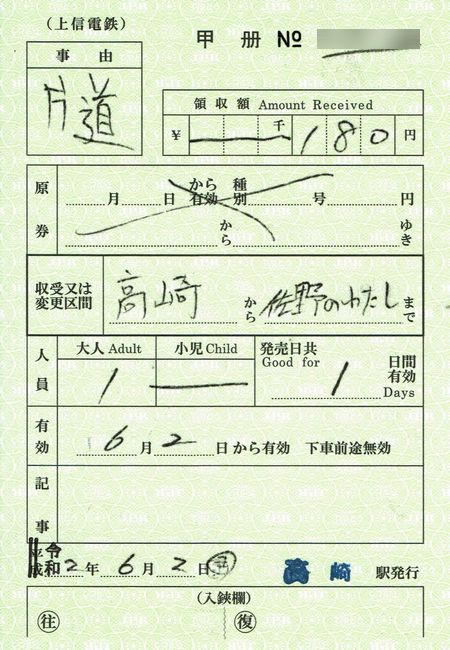 (上信電鉄)
甲 册 №
事由
片道
領収額 Amount Received
¥ 千 180 円
原券
月 日 から有効 種別 号 円
から ゆき
収受又は変更区間
高崎 から 佐野のわたし まで
人員
大人 Adult 小児 Child 発売日共 Good for
1 1 日間有効 Days
有効
6月2日から有効 下車前途無効
記事
平成 令和 2年6月2日 高崎 駅発行
(入鋏欄)
往 復